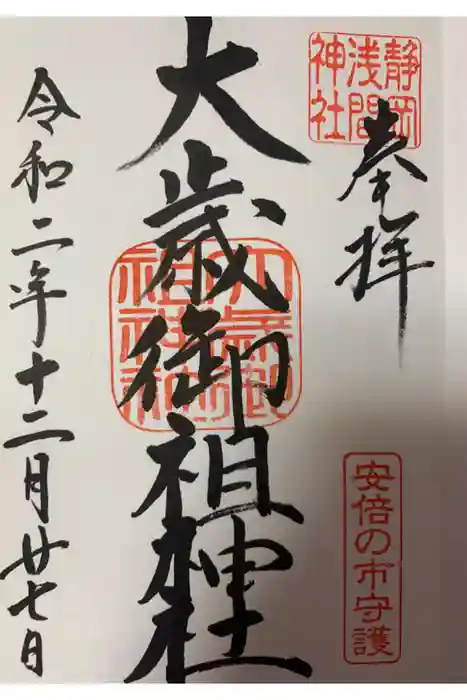 静岡
浅間
神社
奉拝
安倍の市守護
大歳御祖神社
大歳御
祖神社
令和二年十二月廿七日